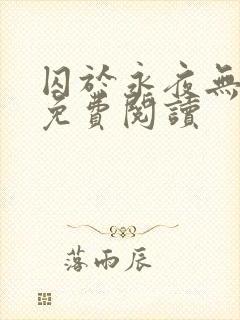 囚於永夜無
免費閱讀
落雨辰